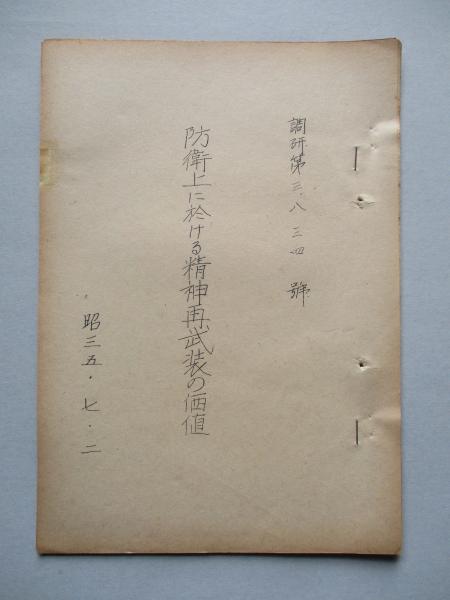 調研第三、八三四號
防衛上に於ける精神再武装の価値
昭三五・七・二